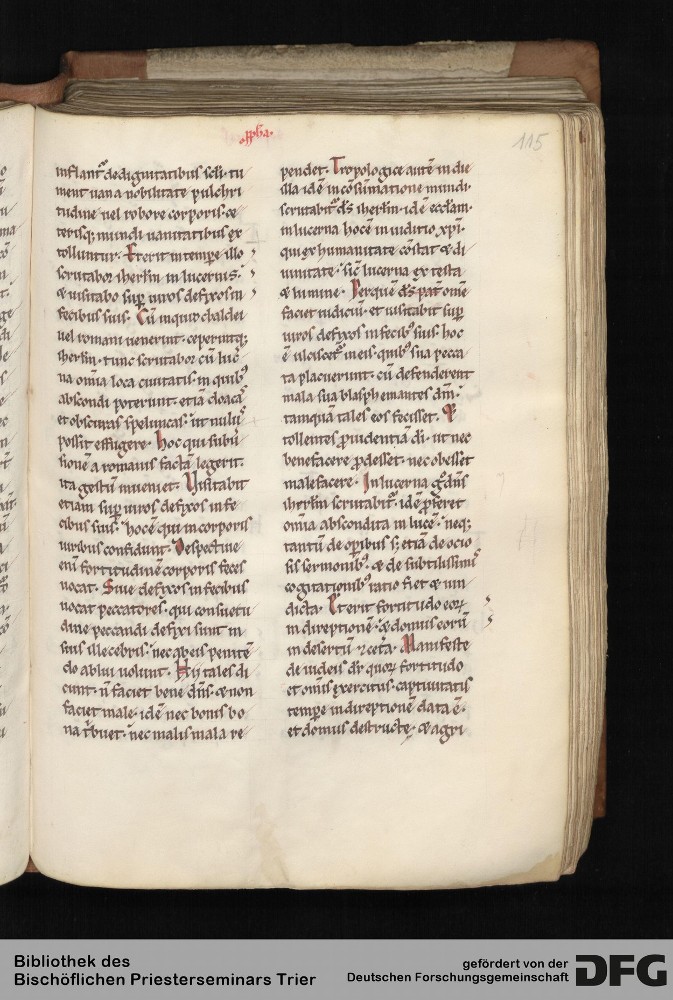 sopħa.
115
inflant᷑ de dignitatibus sc̄li. tu
ment uana nobilitate pulchri
tudine uel robore corporis. ce
terisq; mundi uanitatibus ex
tolluntur. Et erit in tempr̄e illo
scrutabor iherłm in lucernis.
& uisitabo suꝑ uiros defixos in
fecibus suis. Cū inquid chaldei
uel romani uenerint. ceperintq;
iherłm. tunc scrutabor cū luc̄
na om̄ia loca ciuitatis. in quib᷒
abscondi poterunt. etiā cloacas
et obscuras speluncas. ut null᷒
possit effugere. Hoc qui subu̅
sionē a romanis factā legerit.
ita gestū inueniet. Uisitabit
etiam suꝑ uiros defixos in fe
cibus suis. hoc ē qui in corporis
uiribus confidunt. Despectiue
eni᷑ fortitudinē corporis feces
uocat. Siue defixos in fecibus
uocat peccatores. qui consuetu
dine peccandi defixi sunt in
suis illecebris. nec ab eis penitē
do ablui uolunt. Hij tales di
cunt. n̄ faciet bene dn̄s. & non
faciet male. id ē nec bonis bo
na t͛buet. nec malis mala re
pendet. Tropologice autē in die
illa id ē in cōsūmatione mundi.
scrutabit᷑ dn̄s iherłm. id ē eccl̄am.
in lucerna hoc ē in iuditio xp̄i.
qui ex humanitate cōstat & di
uinitate. sic̄ lucerna ex testa
& lumine. Per quē ds̄ pat͛ om̄e
faciet iudiciū. et uisitabit suꝑ
uiros defixos in fecib᷒ suis. hoc
ē ulciscet᷑ in eis. quib᷒ sua pecca
ta placuerunt. cū defenderent
mala sua blasphemantes dm̄.
tamquā tales eos fecisset.
tollentes ꝓuidentiā di̅. ut nec
benefacere ꝓdesset. nec obesset
malefacere. In lucerna g͛ dn̄s
iherłm scrutabit᷑. id ē ꝓferet
om̄ia abscondita in lucē. neq;
tantū de oꝑibus s; etiā de ocio
sis sermonib᷒. & de subtilissimis
cogitationib᷒ ratio fiet & uin
dicta. Et erit fortitudo eoꝝ
in direptionē. & domus eorū
in desertū & ceta᷑. Manifeste
de iudeis dr̄ quoꝝ fortitudo
et omīs exercitus. captiuitatis
tempr̄e in direptionē data ē.
et domus destructę. & agri
Bibliothek des
Bischöflichen Priesterseminars Trier
gefördert von der
Deutschen Forschungsgemeinschaft
DFG